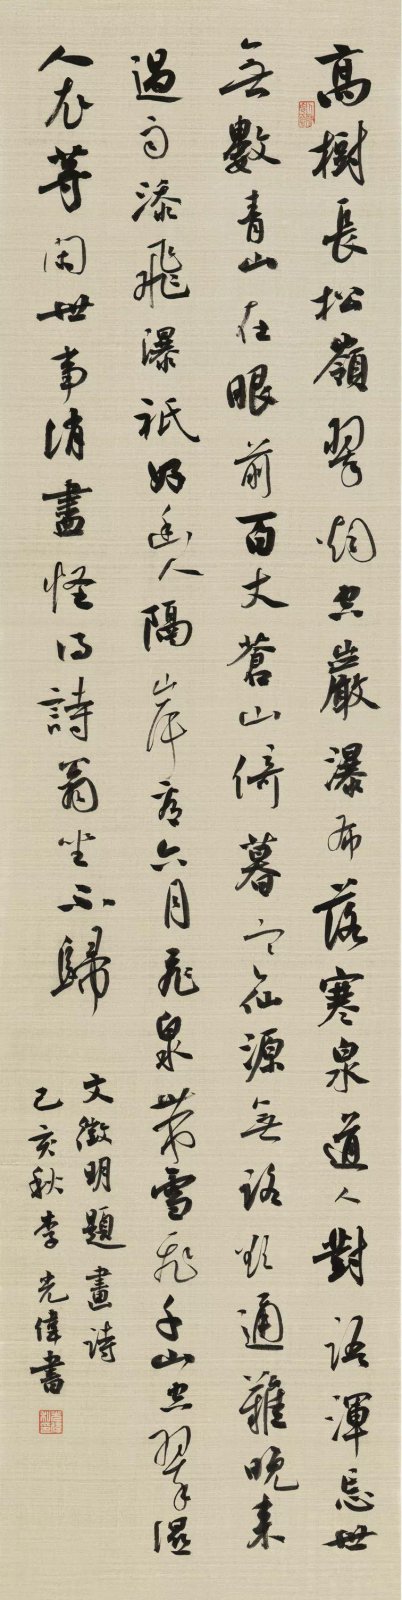 高樹長松嶺翠烟空巖瀑布落寒泉道人對語渾忘世
無數青山在眼前百丈蒼山倚暮寒仙源無路欲通難晚來
過雨添飛瀑祇好幽人隔岸看六月飛泉帶雪飛千山空翠濕
人衣等閑世事消盡怪得詩翁坐不歸
文徵明題畫詩
己亥秋李光偉書